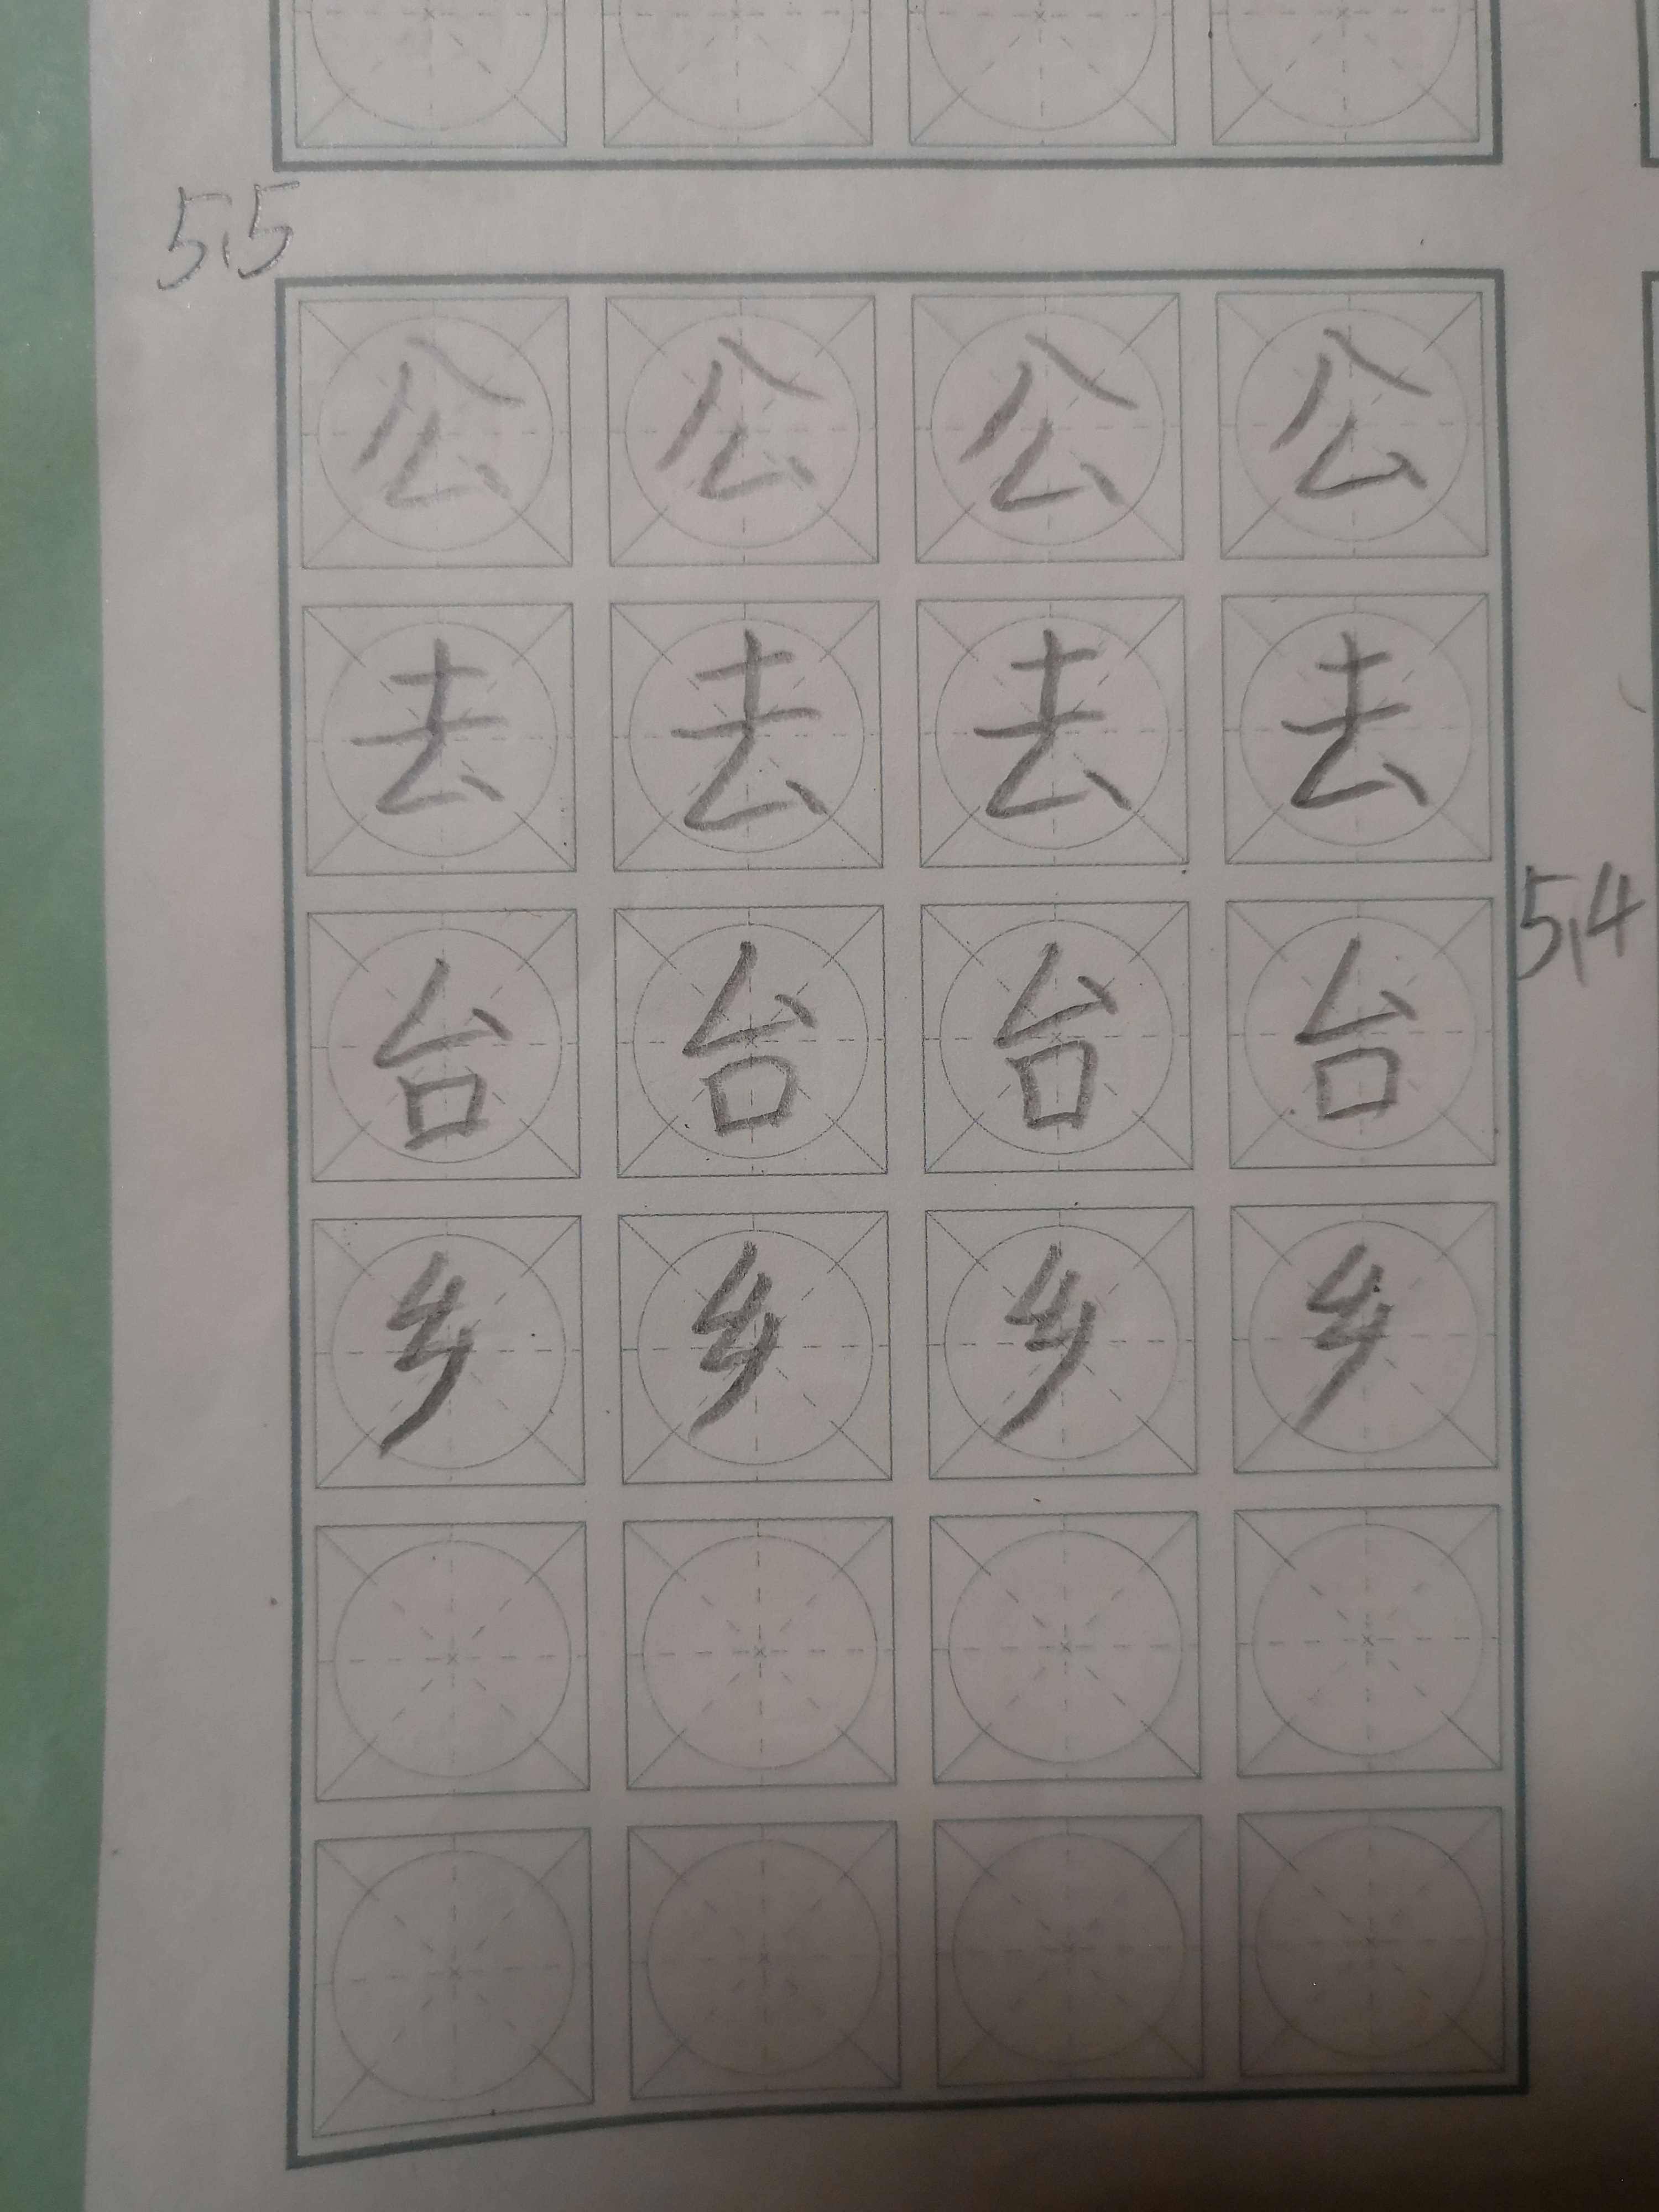 5,5
公 公 公 公
去 去 去 去
台 台 台 台
5,4
乡 乡 乡 乡